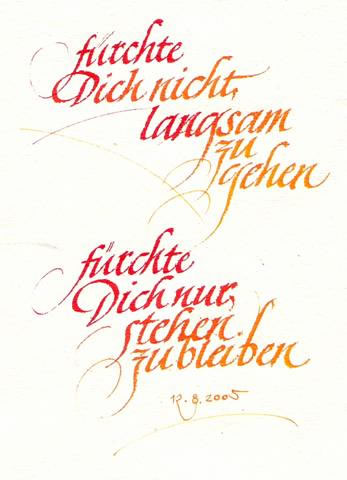 fürchte
Dich nicht,
langsam
zu
gehen
fürchte
Dich nur,
stehen
zu bleiben
12.8.2005